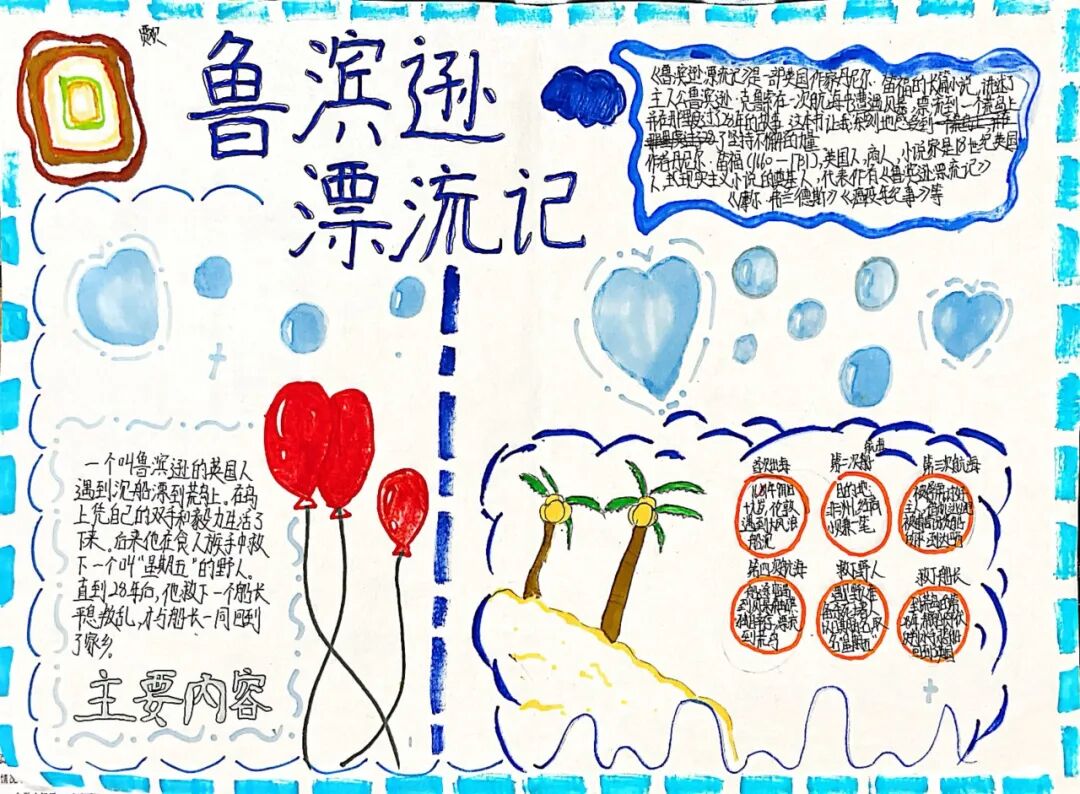 鲁滨逊
漂流记
《鲁滨逊漂流记》是一部英国作家丹尼尔·笛福的长篇小说，讲述了
主人公鲁滨逊·克鲁索在一次航海中遭遇风暴，漂流到一个荒岛上
并在那里度过了28年的故事。这本书让我深刻地感受到
了坚持不懈的力量
作者丹尼尔·笛福(1660—1731),英国人,商人,小说家是18世纪英国
人,现实主义小说的奠基人,代表作有《鲁滨逊漂流记》
《摩尔·弗兰德斯》《瘟疫年纪事》等
一个叫鲁滨逊的英国人
遇到沉船漂到荒岛上。在岛
上凭自己的双手和毅力生活了
下来。后来他在食人族手中救
下一个叫“星期五”的野人。
直到28年后，他救下一个船长
平息叛乱，才与船长一同回到
了家乡。
主要内容
首次出海
遇到大风浪
船沉
第二次航海
目的地:
非州,经商
小赚一笔
第三次航海
第四次航海
到荒岛
救下野人
名“星期五”
救下船长
回到英国